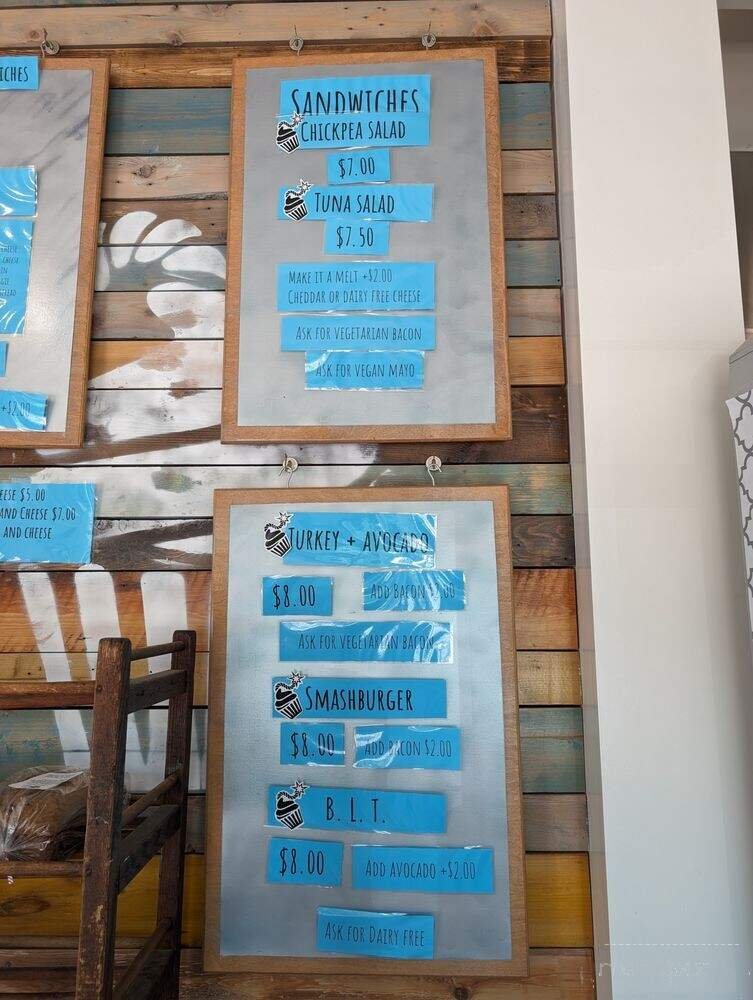 ICHES
CHEESE
CHEESE
IN
GIE
BREAD
+$2.00
EESE $5.00
AND CHEESE $7.00
AND CHEESE
SANDWICHES
CHICKPEA SALAD
$7.00
TUNA SALAD
$7.50
MAKE IT A MELT +$2.00
CHEDDAR OR DAIRY FREE CHEESE
ASK FOR VEGETARIAN BACON
ASK FOR VEGAN MAYO
TURKEY + AVOCADO
$8.00
ADD BACON $2.00
ASK FOR VEGETARIAN BACON
SMASHBURGER
$8.00
ADD BACON $2.00
B. L. T.
$8.00
ADD AVOCADO +$2.00
ASK FOR DAIRY FREE